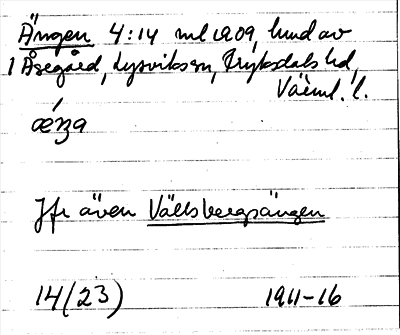 Ängen 4:14 ml 1909, hmd av
1 Åsegård, Lysviks sn, Fryksdals hd,
Värml. l.
ǽŋa
Jfr även Vällsbergsängen
14(23) 1911-16